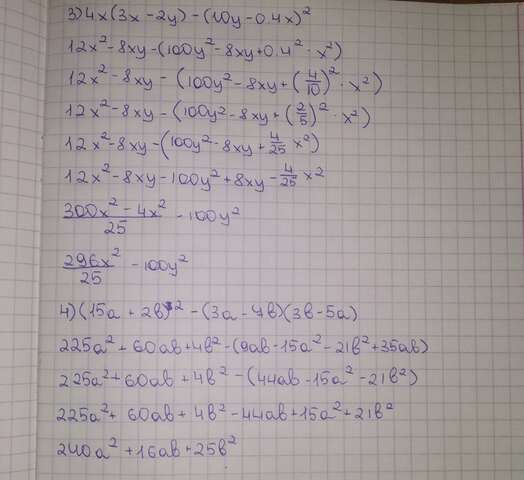 3) 4x(3x - 2y) - (10y - 0.4x)²
12x² - 8xy - (100y² - 8xy + 0.4² · x²)
12x² - 8xy - (100y² - 8xy + (4/10)² · x²)
12x² - 8xy - (100y² - 8xy + (2/5)² · x²)
12x² - 8xy - (100y² - 8xy + 4/25 x²)
12x² - 8xy - 100y² + 8xy - 4/25 x²
(300x² - 4x²)/25 - 100y²
296x²/25 - 100y²
4) (15a + 2в)² - (3a - 7в)(3в - 5a)
225a² + 60aв + 4в² - (9aв - 15a² - 21в² + 35aв)
225a² + 60aв + 4в² - (44aв - 15a² - 21в²)
225a² + 60aв + 4в² - 44aв + 15a² + 21в²
240a² + 16aв + 25в²